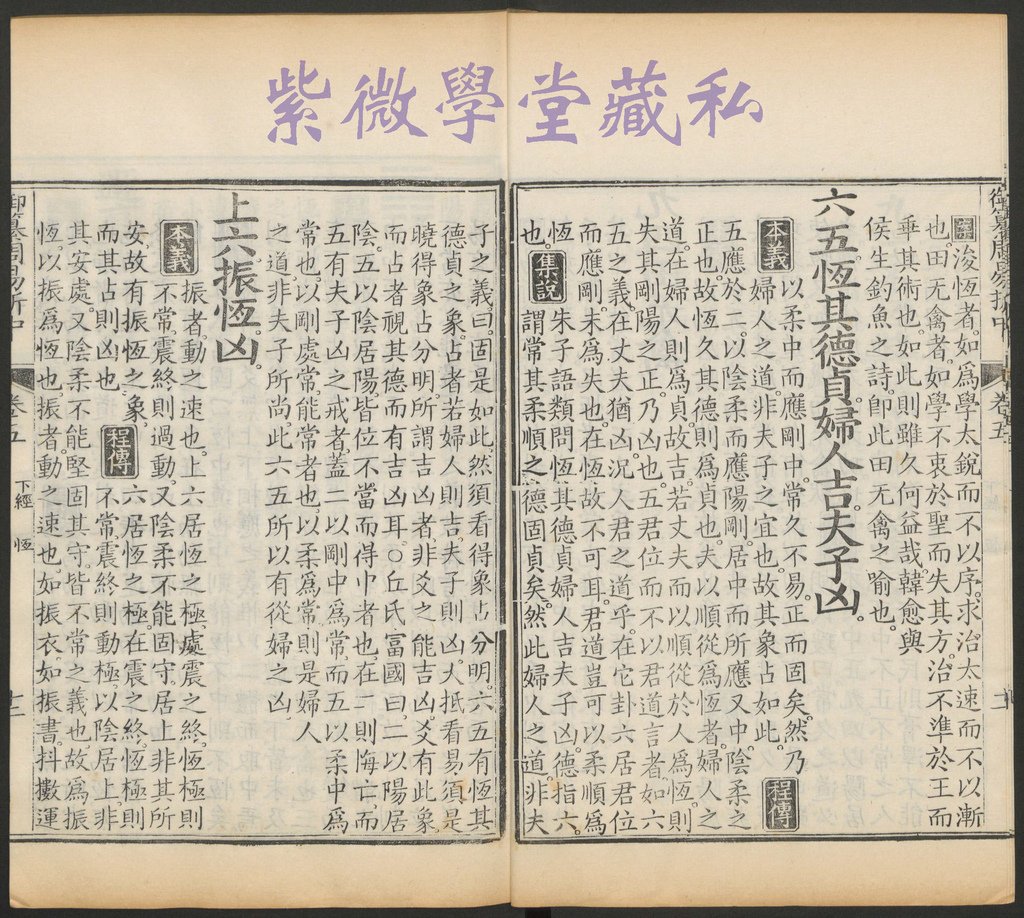 紫微學堂藏私
浚恆者。如爲學太銳而不以序。求治太速而不以漸
也。田无禽者。如學不衷於聖而失其方。治不準於王而
垂其術也。如此則雖久何益哉。韓愈與
侯生釣魚之詩。卽此田无禽之喻也。
六五。恆其德貞。婦人吉夫子凶。
本義 以柔中而應剛中。常久不易。正而固矣。然乃
婦人之道。非夫子之宜也。故其象占如此。 程傳
五應於二。以陰柔而應陽剛。居中而所應又中。陰柔之
正也。故恆久其德則爲貞也。夫以順從爲恆者。婦人之
道。在婦人則爲貞。故吉。若丈夫而以順從於人爲恆。則
失其剛陽之正。乃凶也。五君位而不以君道言者。如六
五之義。在丈夫猶凶。況人君之道乎。在它卦六居君位
而應剛。未爲失也。在恆故不可耳。君道豈可以柔順爲
也。 集說 朱子語類問恆其德貞。婦人吉夫子凶。德指六
謂常其柔順之德固貞矣。然此婦人之道。非夫
子之義。曰。固是如此。然須看得象占分明。六五有恆其
德貞之象。占者若婦人則吉。夫子則凶。大抵看易須是
曉得象占分明。所謂吉凶者。非爻之能吉凶。爻有此象。
而占者視其德而有吉凶耳。○丘氏富國曰。二以陽居
陰。五以陰居陽。皆位不當而得中者也。在二則悔亡。而
五有夫子凶之戒者。蓋二以剛中爲常。而五以柔中爲
常也。以剛處常。能常者也。以柔爲常。則是婦人
之道。非夫子所尚。此六五所以有從婦之凶。
上六。振恆。凶。
本義 振者。動之速也。上六居恆之極。處震之終。恆極則
不常。震終則過動。又陰柔不能固守。居上非其所
安。故有振恆之象。 程傳 六居恆之極。在震之終。恆極則
而其占則凶也。 不常。震終則動極。以陰居上。非
其安處。又陰柔不能堅固其守。皆不常之義也。故爲振
恆。以振爲恆也。振者。動之速也。如振衣。如振書。抖擻運
御纂周易折中 卷五 下經 恆 十一